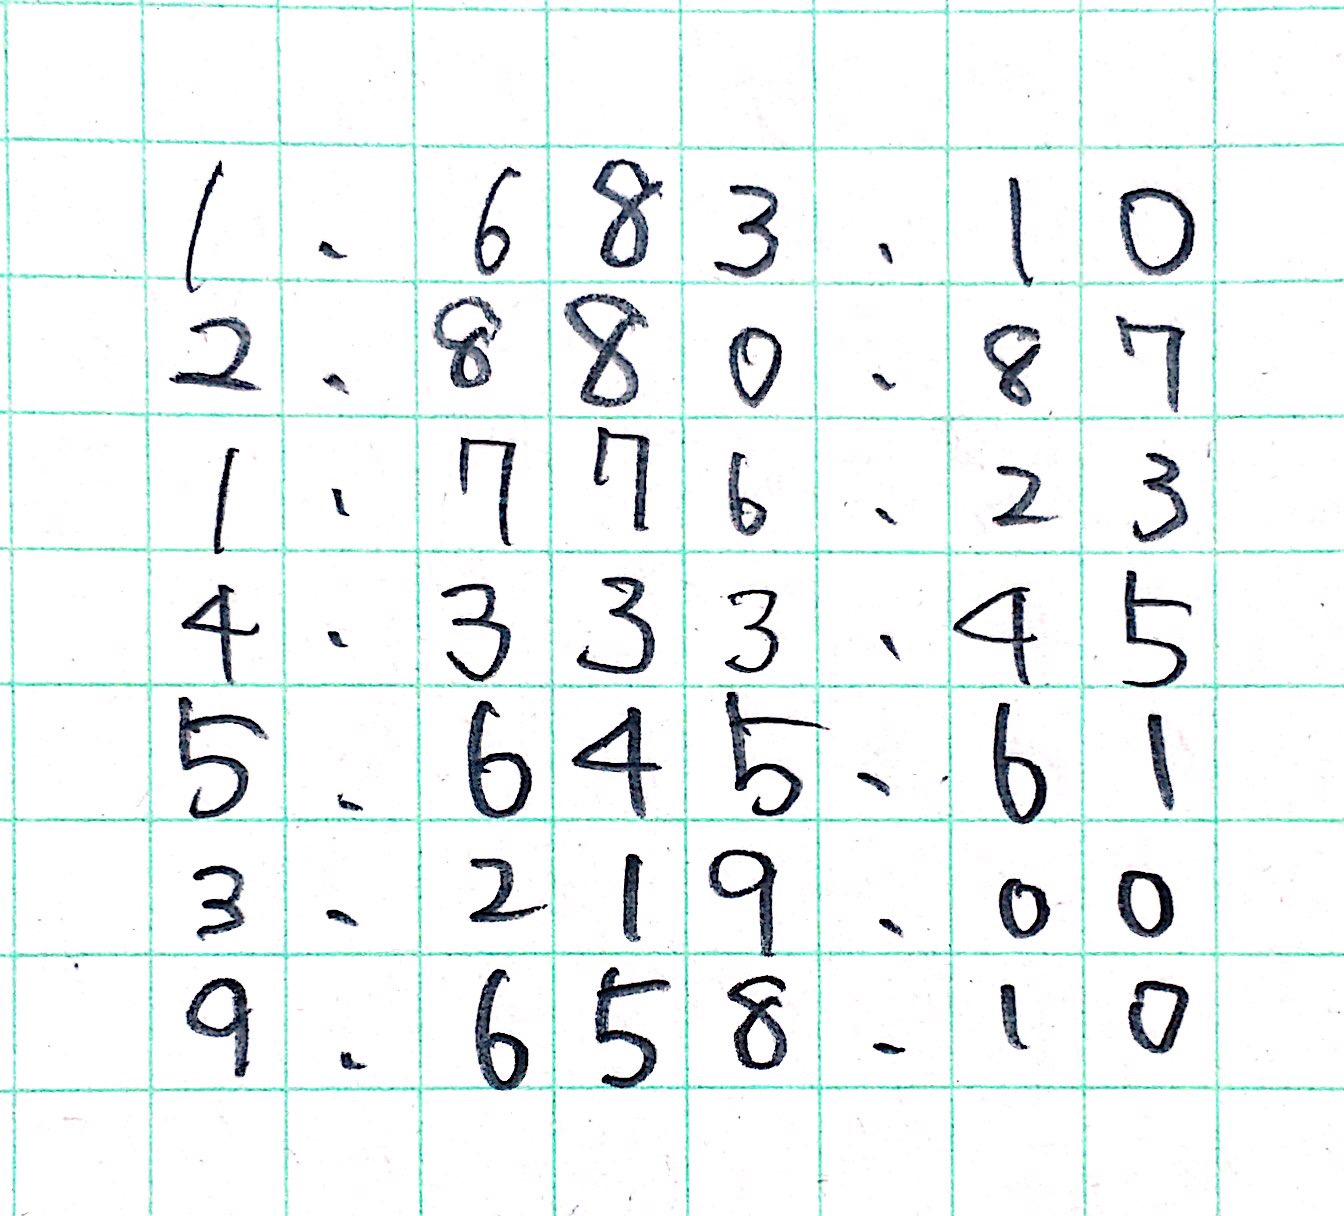 1.683.10
2.880.87
1.776.23
4.333.45
5.645.61
3.219.00
9.658.10